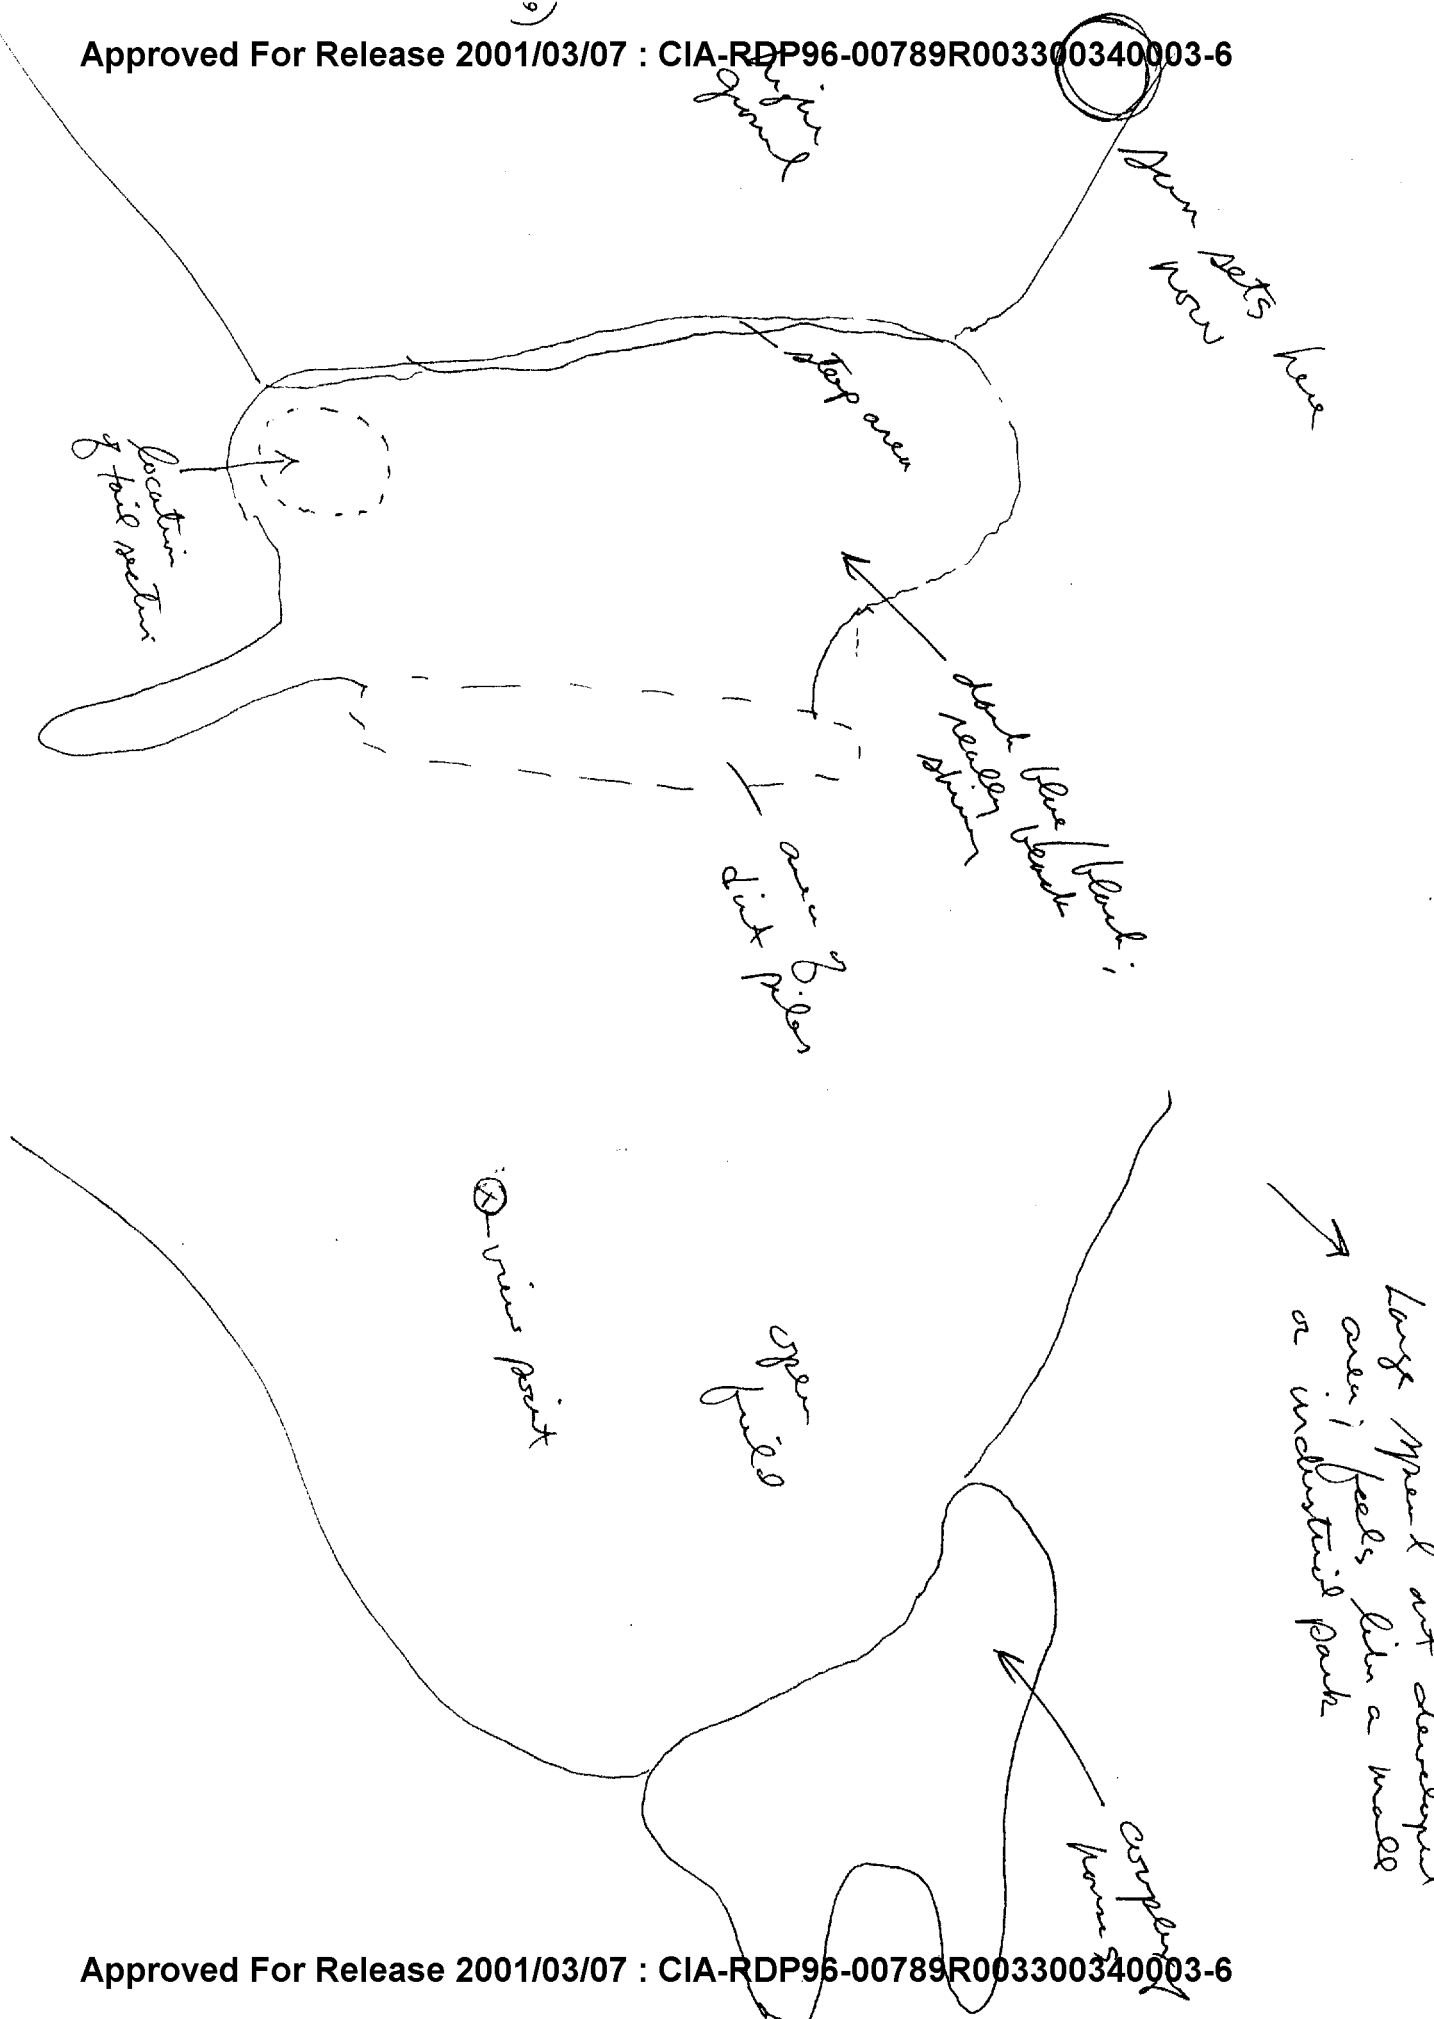 9)
Approved For Release 2001/03/07 : CIA-RDP96-00789R003300340003-6
ground
Sun sets here
now
steep area
location
of tail section
dark blue/black;
really black
shiny
area of
dirt piles
view point
open
field
Large spread out
area; feels like a mall
or industrial park
couple of
homes
Approved For Release 2001/03/07 : CIA-RDP96-00789R003300340003-6